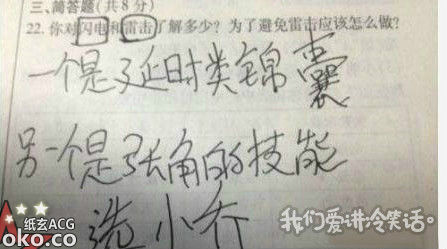 三、简答题(共8分)
22. 你对闪电和雷击了解多少?为了避免雷击应该怎么做?
一个是延时类锦囊
另一个是张角的技能
选小乔
纸玄ACG
oko.co
我们爱讲冷笑话。